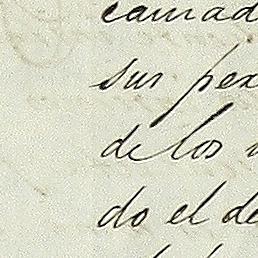 camad
sus pex
de los
do el de